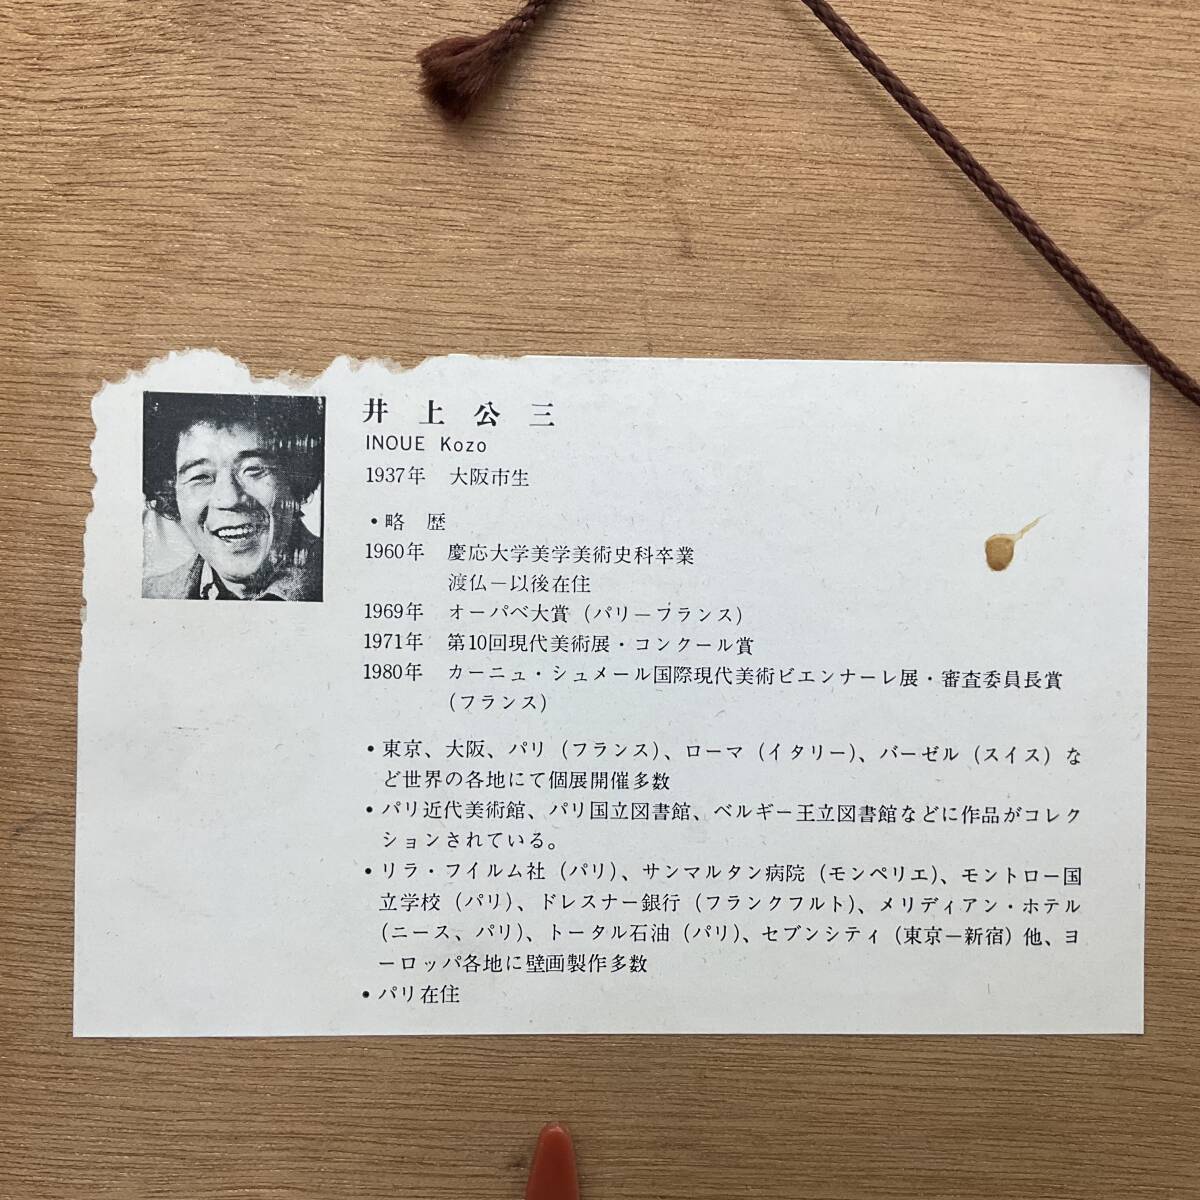 井上公三
INOUE Kozo
1937年 大阪市生
•略 歴
1960年 慶応大学美学美術史科卒業
渡仏―以後在住
1969年 オーパベ大賞（パリ―フランス）
1971年 第10回現代美術展・コンクール賞
1980年 カーニュ・シュメール国際現代美術ビエンナーレ展・審査委員長賞
（フランス）
•東京、大阪、パリ（フランス）、ローマ（イタリー）、バーゼル（スイス）な
ど世界の各地にて個展開催多数
•パリ近代美術館、パリ国立図書館、ベルギー王立図書館などに作品がコレク
ションされている。
•リラ・フイルム社（パリ）、サンマルタン病院（モンペリエ）、モントロー国
立学校（パリ）、ドレスナー銀行（フランクフルト）、メリディアン・ホテル
（ニース、パリ）、トータル石油（パリ）、セブンシティ（東京―新宿）他、ヨ
ーロッパ各地に壁画製作多数
•パリ在住